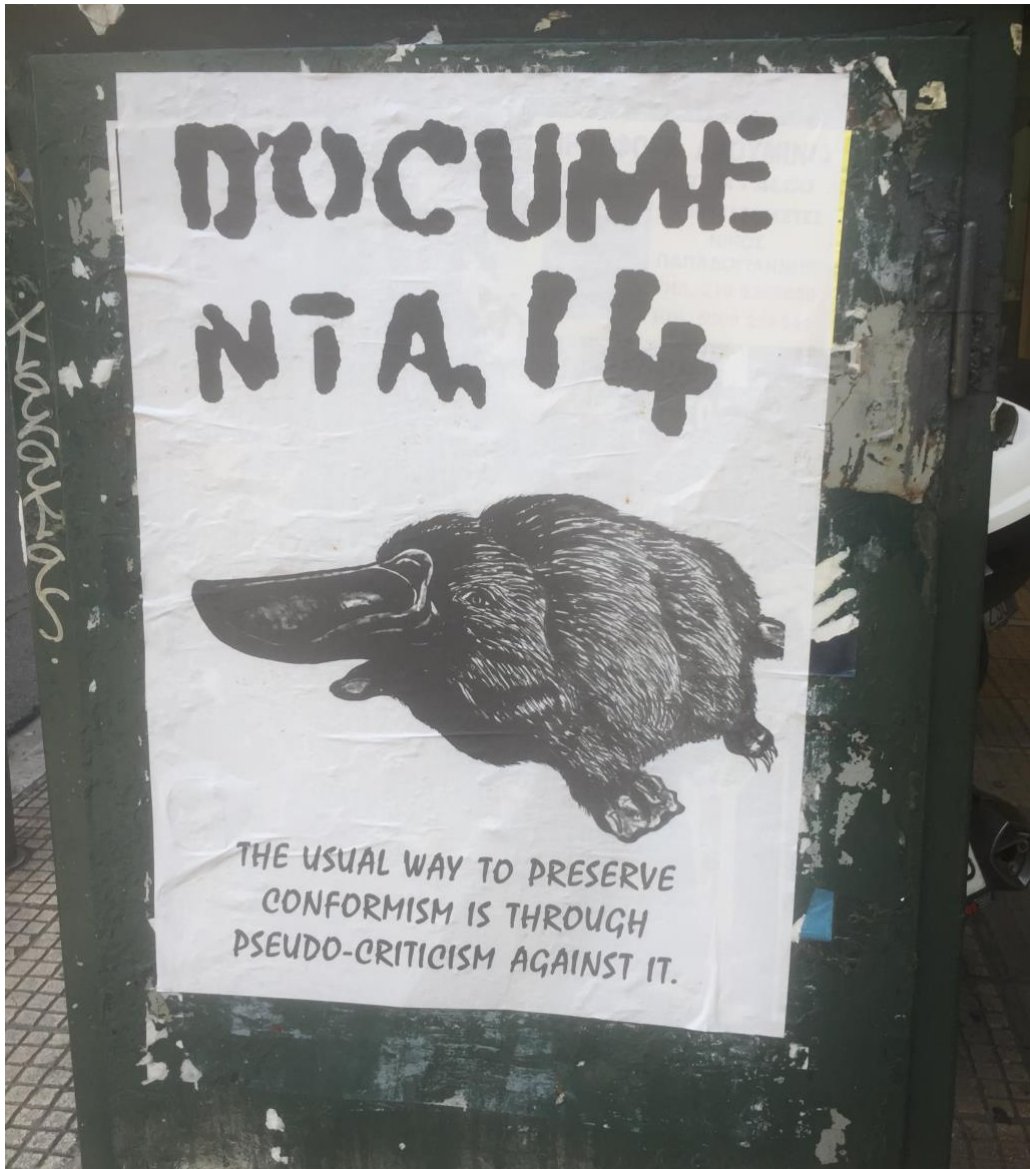 DOCUME
NTA 14
THE USUAL WAY TO PRESERVE
CONFORMISM IS THROUGH
PSEUDO-CRITICISM AGAINST IT.